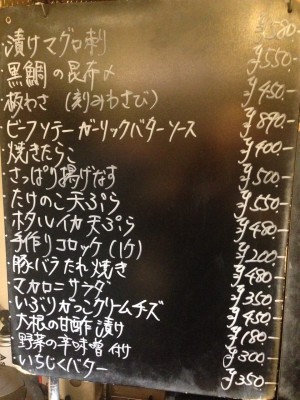 漬けマグロ刺 ¥580-
黒鯛の昆布〆 ¥550-
板わさ (刻みわさび) ¥450-
ビーフソテーガーリックバターソース ¥890-
焼きたらこ ¥400-
さっぱり揚げなす ¥500-
たけのこ天ぷら ¥550-
ホタルイカ天ぷら ¥480-
手作りコロッケ(1ケ) ¥200-
豚バラたれ焼き ¥480-
マカロニサラダ ¥350-
いぶりがっこクリームチーズ ¥450-
大根の甘酢漬け ¥180-
野菜の辛味噌付 ¥300-
いちじくバター ¥350-